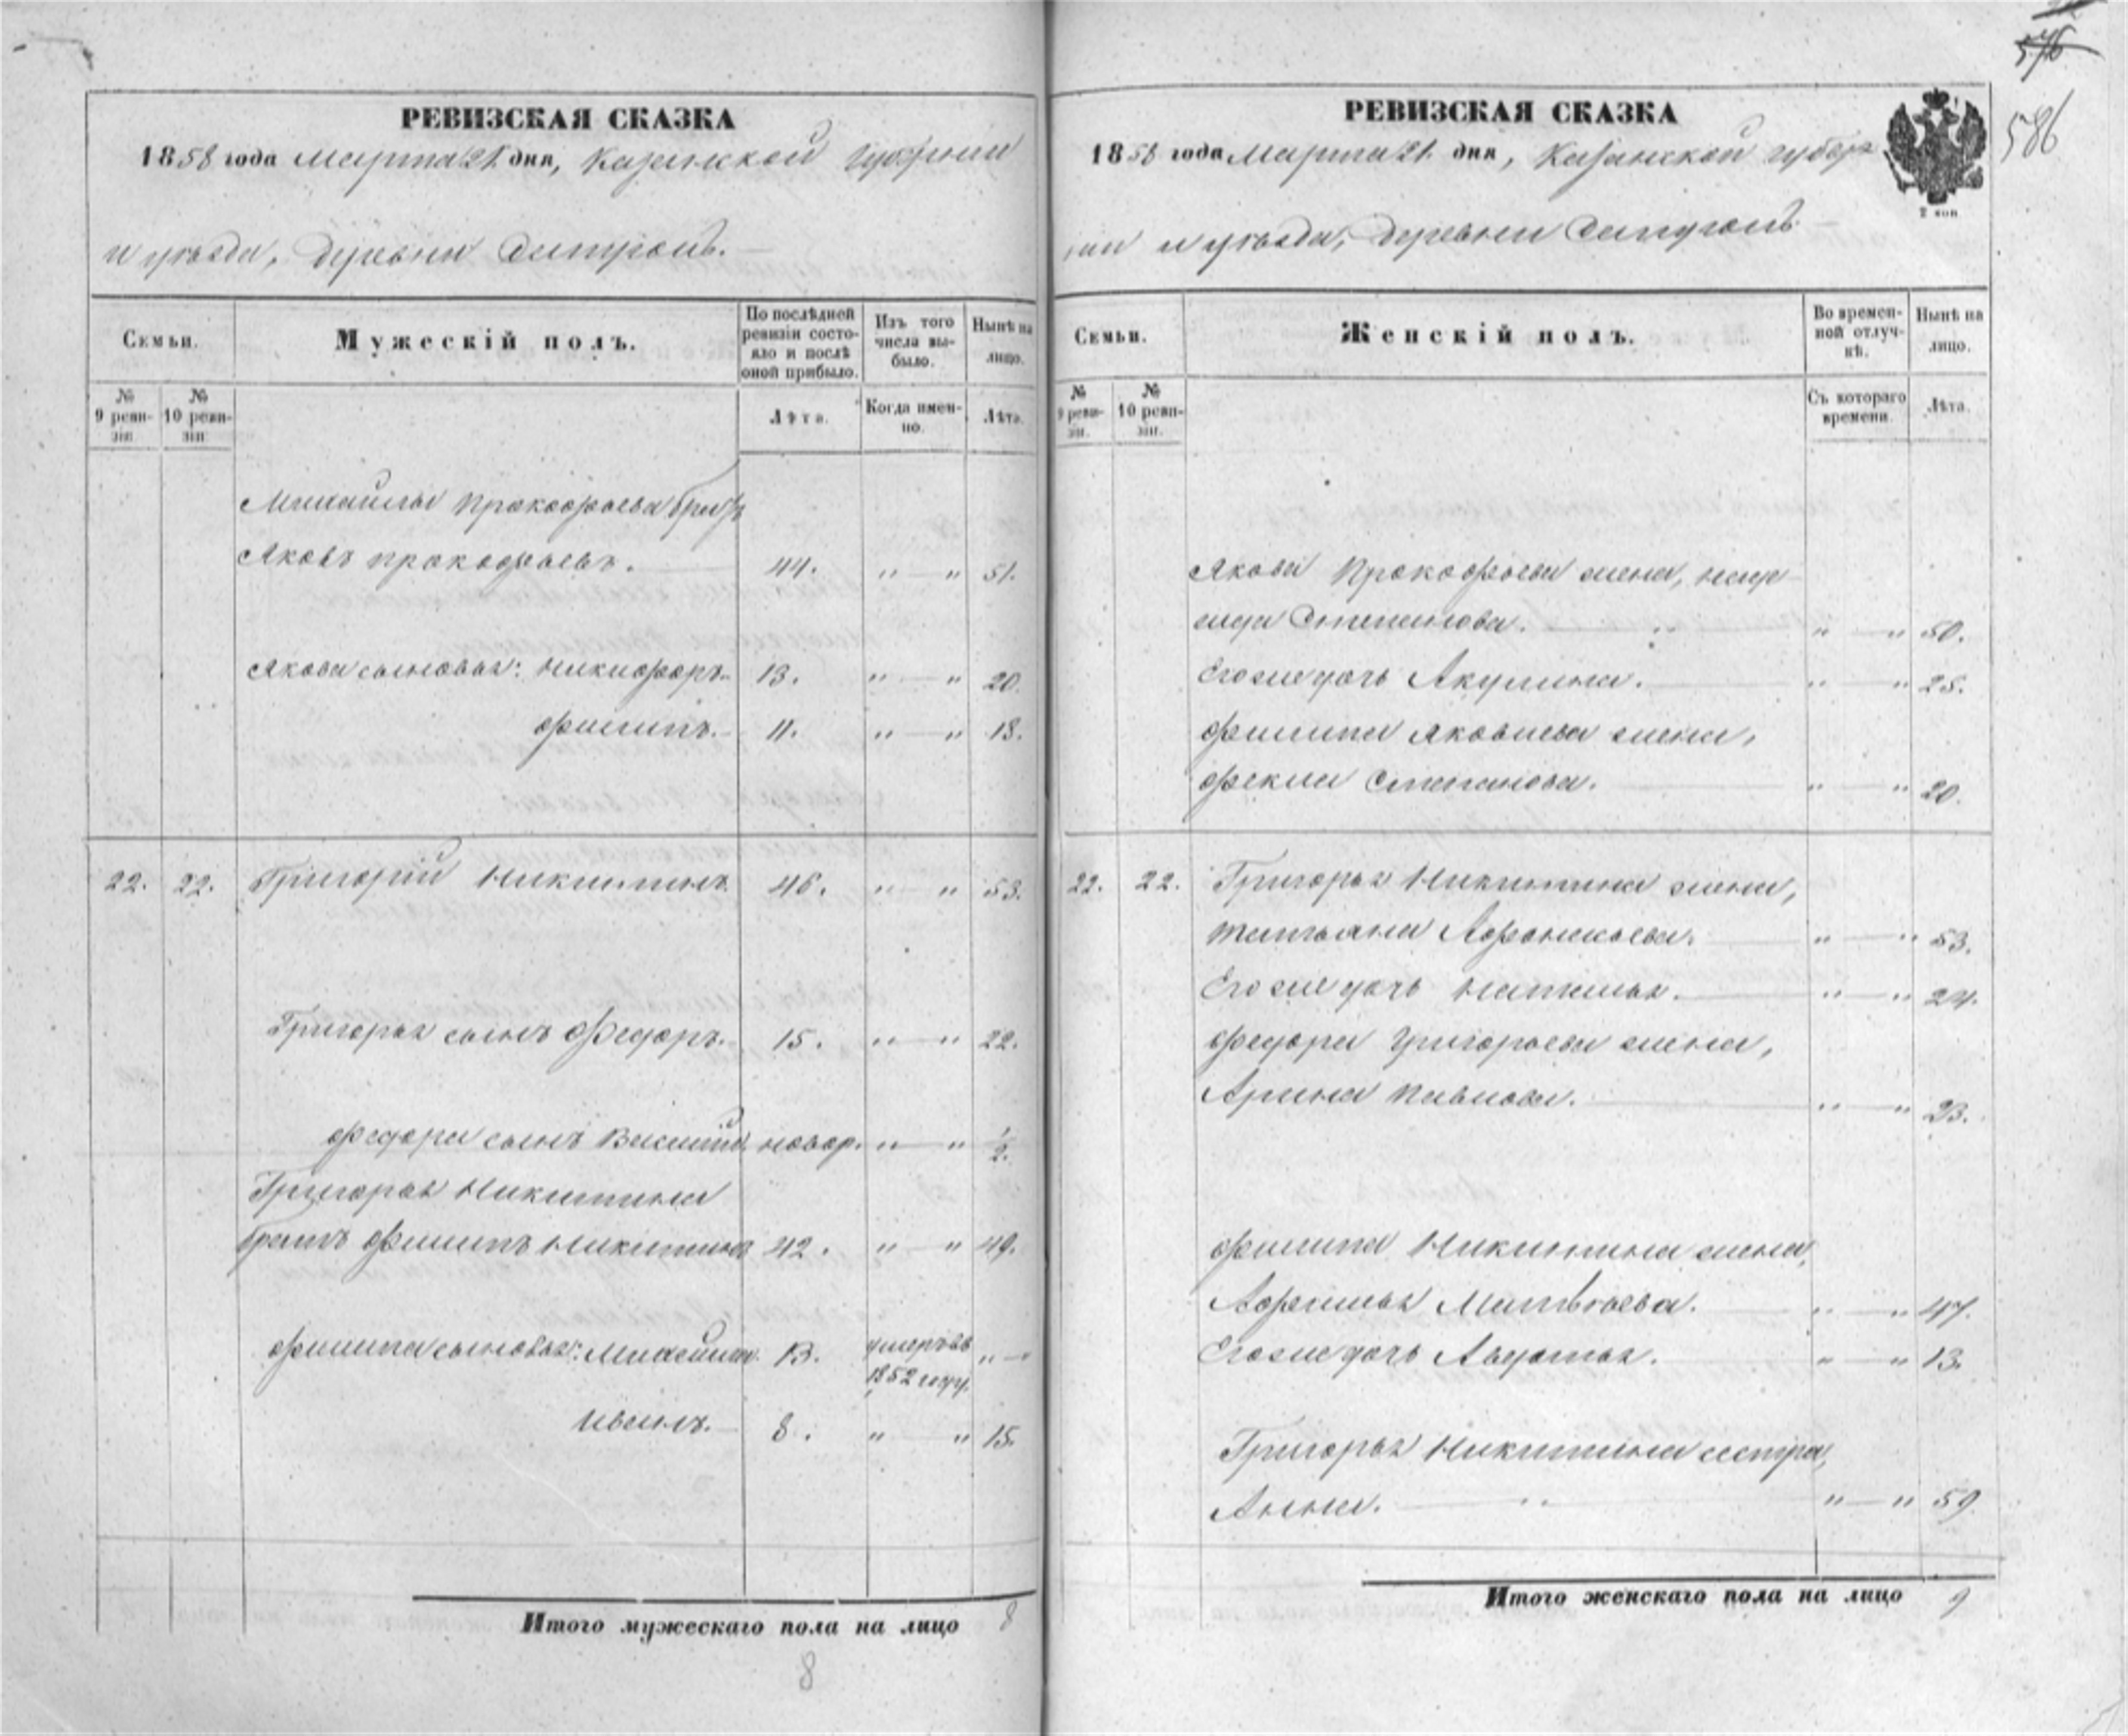 576
586
РЕВИЗСКАЯ СКАЗКА
1858 года Марта 21. дня, Казанской Губернии
и уѣзда, Деревни
Семьи.
Мужескій полъ.
По послѣдней ревизіи состояло и послѣ оной прибыло.
Изъ того числа выбыло.
Нынѣ на лицо.
№ 9 ревизіи
№ 10 ревизіи
Лѣта.
Когда именно.
Лѣта.
Михайлы Прокофьева братъ
Яковъ Прокофьевъ. 44. " — " 51.
Якова сыновья: Никифоръ. 13. " — " 20.
Филипъ. 11. " — " 18.
22. 22. Григорій Никитинъ 46. " " 53.
Григорья сынъ Федоръ. 15. " — " 22.
Федора сынъ Василій новор. " — " 1/2.
Григорья Никитина
братъ Филипъ Никитинъ 42. " — " 49.
Филипа сыновья: 13. умеръ въ 1852 году. " —
Иванъ. 8. " " 15.
Итого мужескаго пола на лицо 8
8
РЕВИЗСКАЯ СКАЗКА
1858 года Марта 21. дня, Казанской губер
ніи и уѣзда, Деревни
2 коп
Семьи.
Женскій полъ.
Во временной отлучкѣ.
Нынѣ на лицо.
№ 9 ревизіи.
№ 10 ревизіи.
Съ котораго времени.
Лѣта.
Якова Прокофьева жена, Наде
жда Степанова. " — " 50.
Его же дочь Акулина. " " 25.
Филипа Яковлева жена,
Фекла Степанова. " — " 20.
22. 22. Григорья Никитина жена,
Татьяна Афонасьева. " — " 53.
Его же дочь Наталья. " — " 24.
Федора Григорьева жена,
Арина Павлова. " — " 23.
Филипа Никитина жена,
Афимья Матвѣева. " — " 47.
Его же дочь Авдотья. " — " 13.
Григорья Никитина сестра,
Анна. " — " 59
Итого женскаго пола на лицо 9